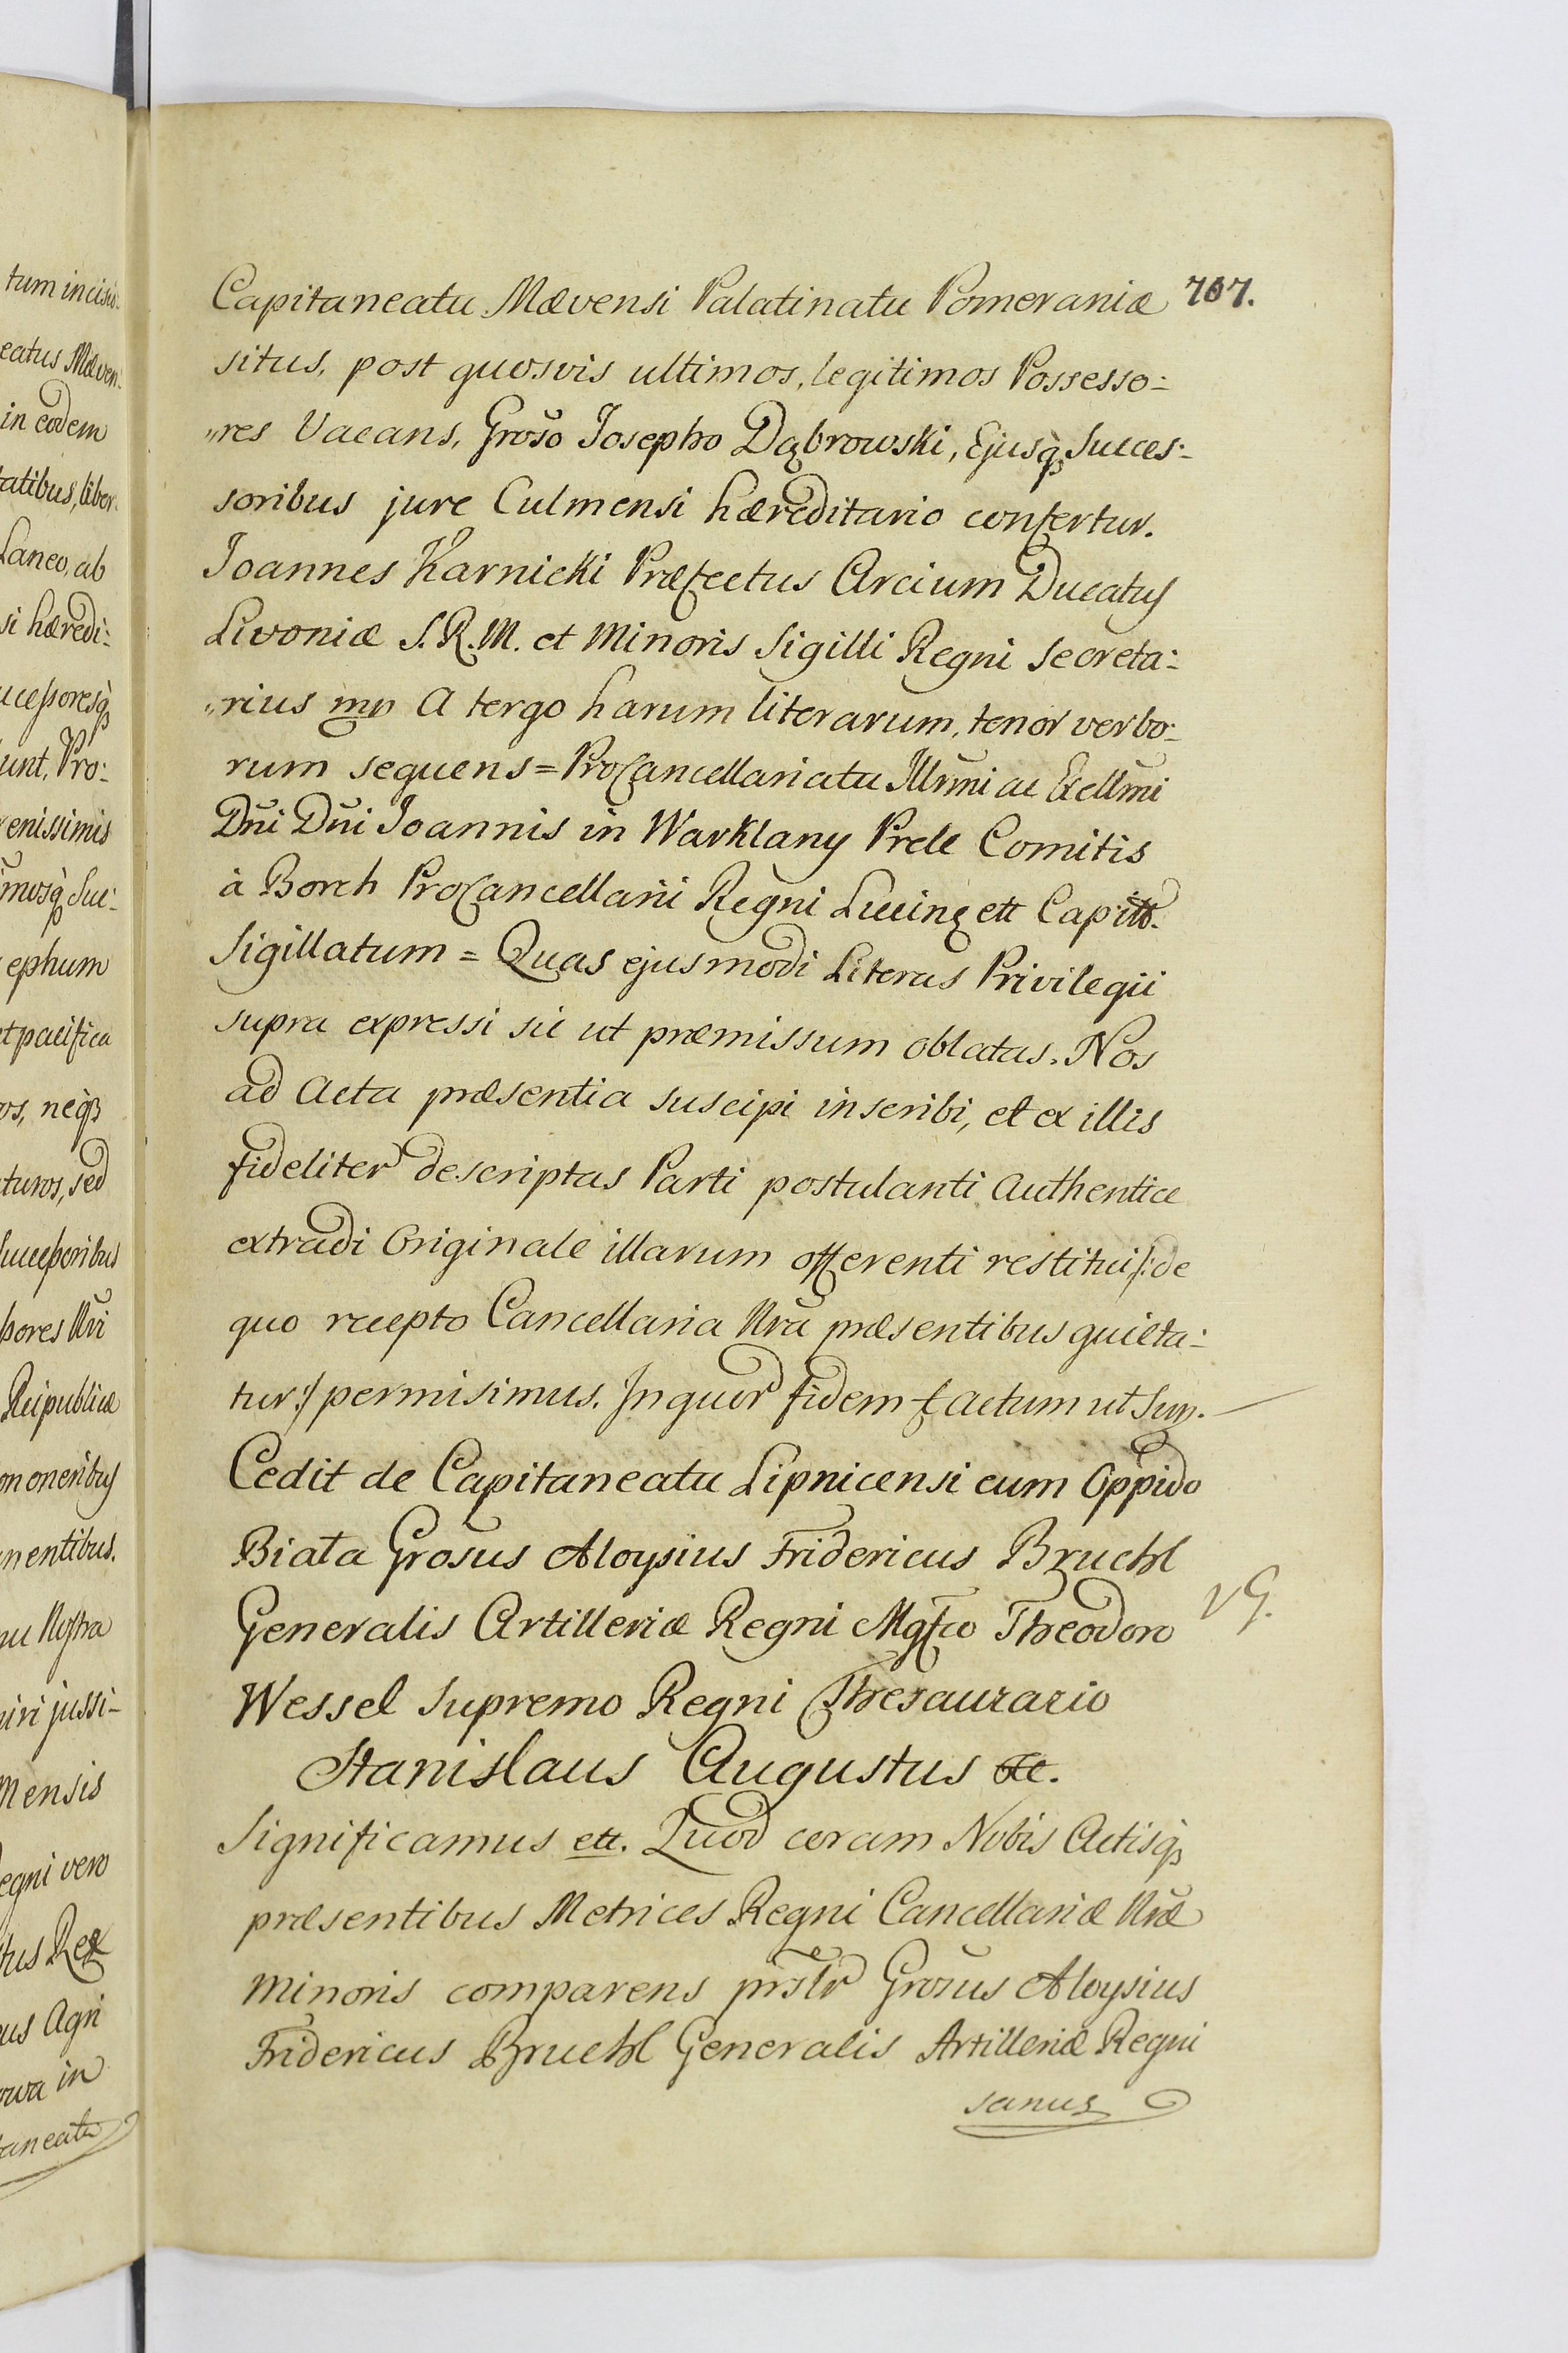 tum inciso:
eatus Mæven:
in eodem
tatibus, liber:
Laneo, ab
si hæredi:
ucessoresq̀
unt, Pro:
renissimis
Suc:
ephum
et pacifica
os, neq̀
turos, sed
Successoribus
ssores Nri
Reipublicæ
on oneribus
nentibus.
nu Nostra
niri jussi-
mensis
Regni vero
tus Rex
us Agri
owa in
taneatu
Capitaneatu Mævensi Palatinatu Pomeraniæ 707.
situs, post quosvis ultimos, legitimos Possesso:
"res Vacans, Groso Josepho Dąbrowski, Ejusq̀ Succes:
soribus jure Culmensi hæreditario confertur.
Joannes Karnicki Præfectus Arcium Ducatus
Livoniæ S. R. M. et Minoris Sigilli Regni Secreta:
"rius mp A tergo harum literarum, tenor verbo:
rum sequens = ProCancellariatu Illrmi ac Excellmi
Dni Dni Joannis in Warklany Prele Comitis
à Borch ProCancellarii Regni Lucinę ett Capitt.
Sigillatum = Quas ejusmodi Literas Privilegii
supra expressi sic ut præmissum oblatas. Nos
ad Acta præsentia suscipi inscribi, et ex illis
fideliter descriptas Parti postulanti Authentice
extradi Originale illarum offerenti restitui /: de
quo recepto Cancellaria Nra præsentibus quieta:
tur :/ permisimus. In quor fidem f Actum ut Sup.
Cedit de Capitaneatu Lipnicensi cum Oppido
Biała Grosus Aloysius Fridericus Bruchl
Generalis Artilleriæ Regni Mgfco Theodoro
vG.
Wessel Supremo Regni Thesaurario
Stanislaus Augustus etc.
Significamus ett. Quod coram Nobis Actisq̀
præsentibus Metrices Regni Cancellariæ Nræ
Minoris comparens prsltr Grosus Aloysius
Fridericus Bruchl Generalis Artilleriæ Regni
sanus